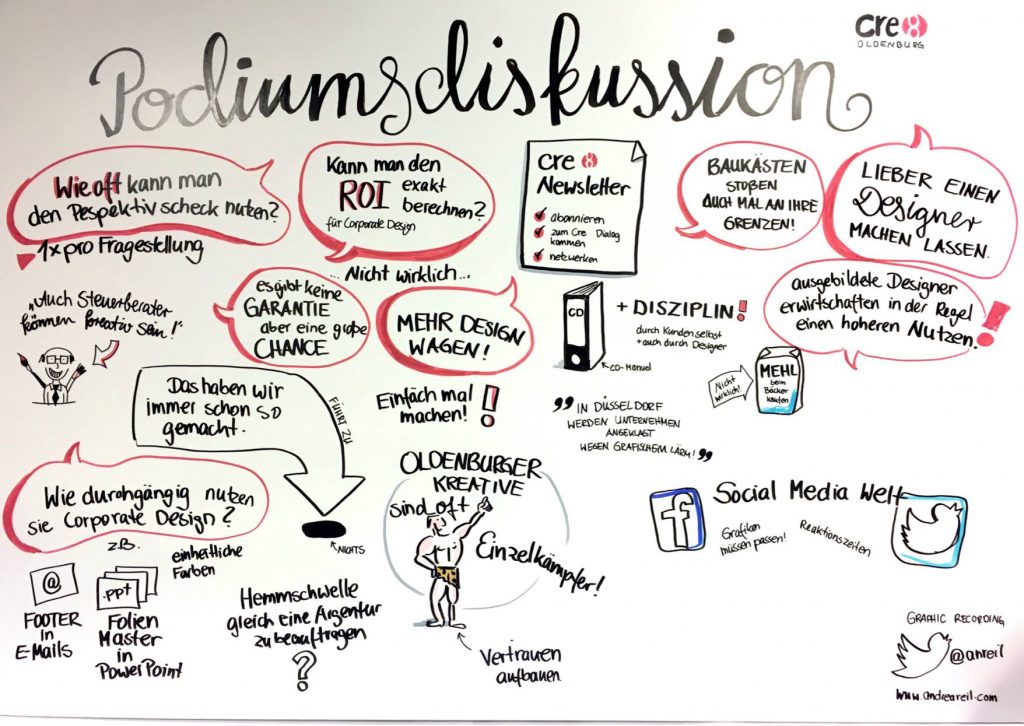 cre8
OLDENBURG
Podiumsdiskussion
Wie oft kann man
den Pespektivscheck nutzen?
1x pro Fragestellung
Kann man den
ROI exakt
berechnen?
für Corporate Design
... Nicht wirklich...
cre8
Newsletter
abonnieren
zum Cre Dialog
kommen
netzwerken
BAUKÄSTEN
STOßEN
AUCH MAL AN IHRE
GRENZEN!
LIEBER EINEN
Designer
MACHEN LASSEN.
„Auch Steuerberater
können kreativ sein!"
es gibt keine
GARANTIE
aber eine große
CHANCE
MEHR DESIGN
WAGEN!
Einfach mal
machen!
CD
+ DISZIPLIN!
durch Kunden selbst
+ auch durch Designer
CD-Manuel
ausgebildete Designer
erwirtschaften in der Regel
einen hoheren Nutzen.
Nicht
wirklich!
MEHL
beim
Bäcker
kaufen
Das haben wir
immer schon so
gemacht.
FÜHRT ZU
NICHTS
„IN DÜSSELDORF
WERDEN UNTERNEHMEN
ANGEKLAGT
WEGEN GRAFISCHEM LÄRM!"
Wie durchgängig nutzen
sie Corporate Design?
z.B.
einheitliche
Farben
@
FOOTER
in
E-Mails
.ppt
Folien
Master
in
PowerPoint
Hemmschwelle
gleich eine Argentur
zu beauftragen
?
OLDENBURGER
KREATIVE
sind oft
Einzelkämpfer!
Vertrauen
aufbauen
f
Social Media Welt
Grafiken
müssen passen!
Reaktionszeiten
GRAPHIC RECORDING
@anreil
www.andreareil.com